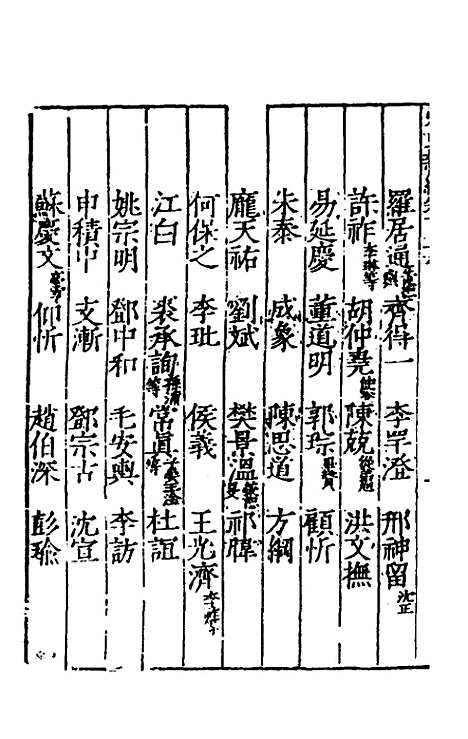 羅居通 齊得一 李罕澄 邢神留沈正
許祚李琳等 胡仲堯 陳兢 洪文撫
易延慶 董道明 郭琮 顧忻
朱泰 成象 陳思道 方綱
龐天祐 劉斌 樊景溫 祁暐
何保之 李玭 侯義 王光濟
江白 裘承詢孫浦等 常真 杜誼
姚宗明 鄧中和 毛安輿 李訪
申積中 支漸 鄧宗古 沈宣
蘇慶文 仰忻 趙伯深 彭瑜